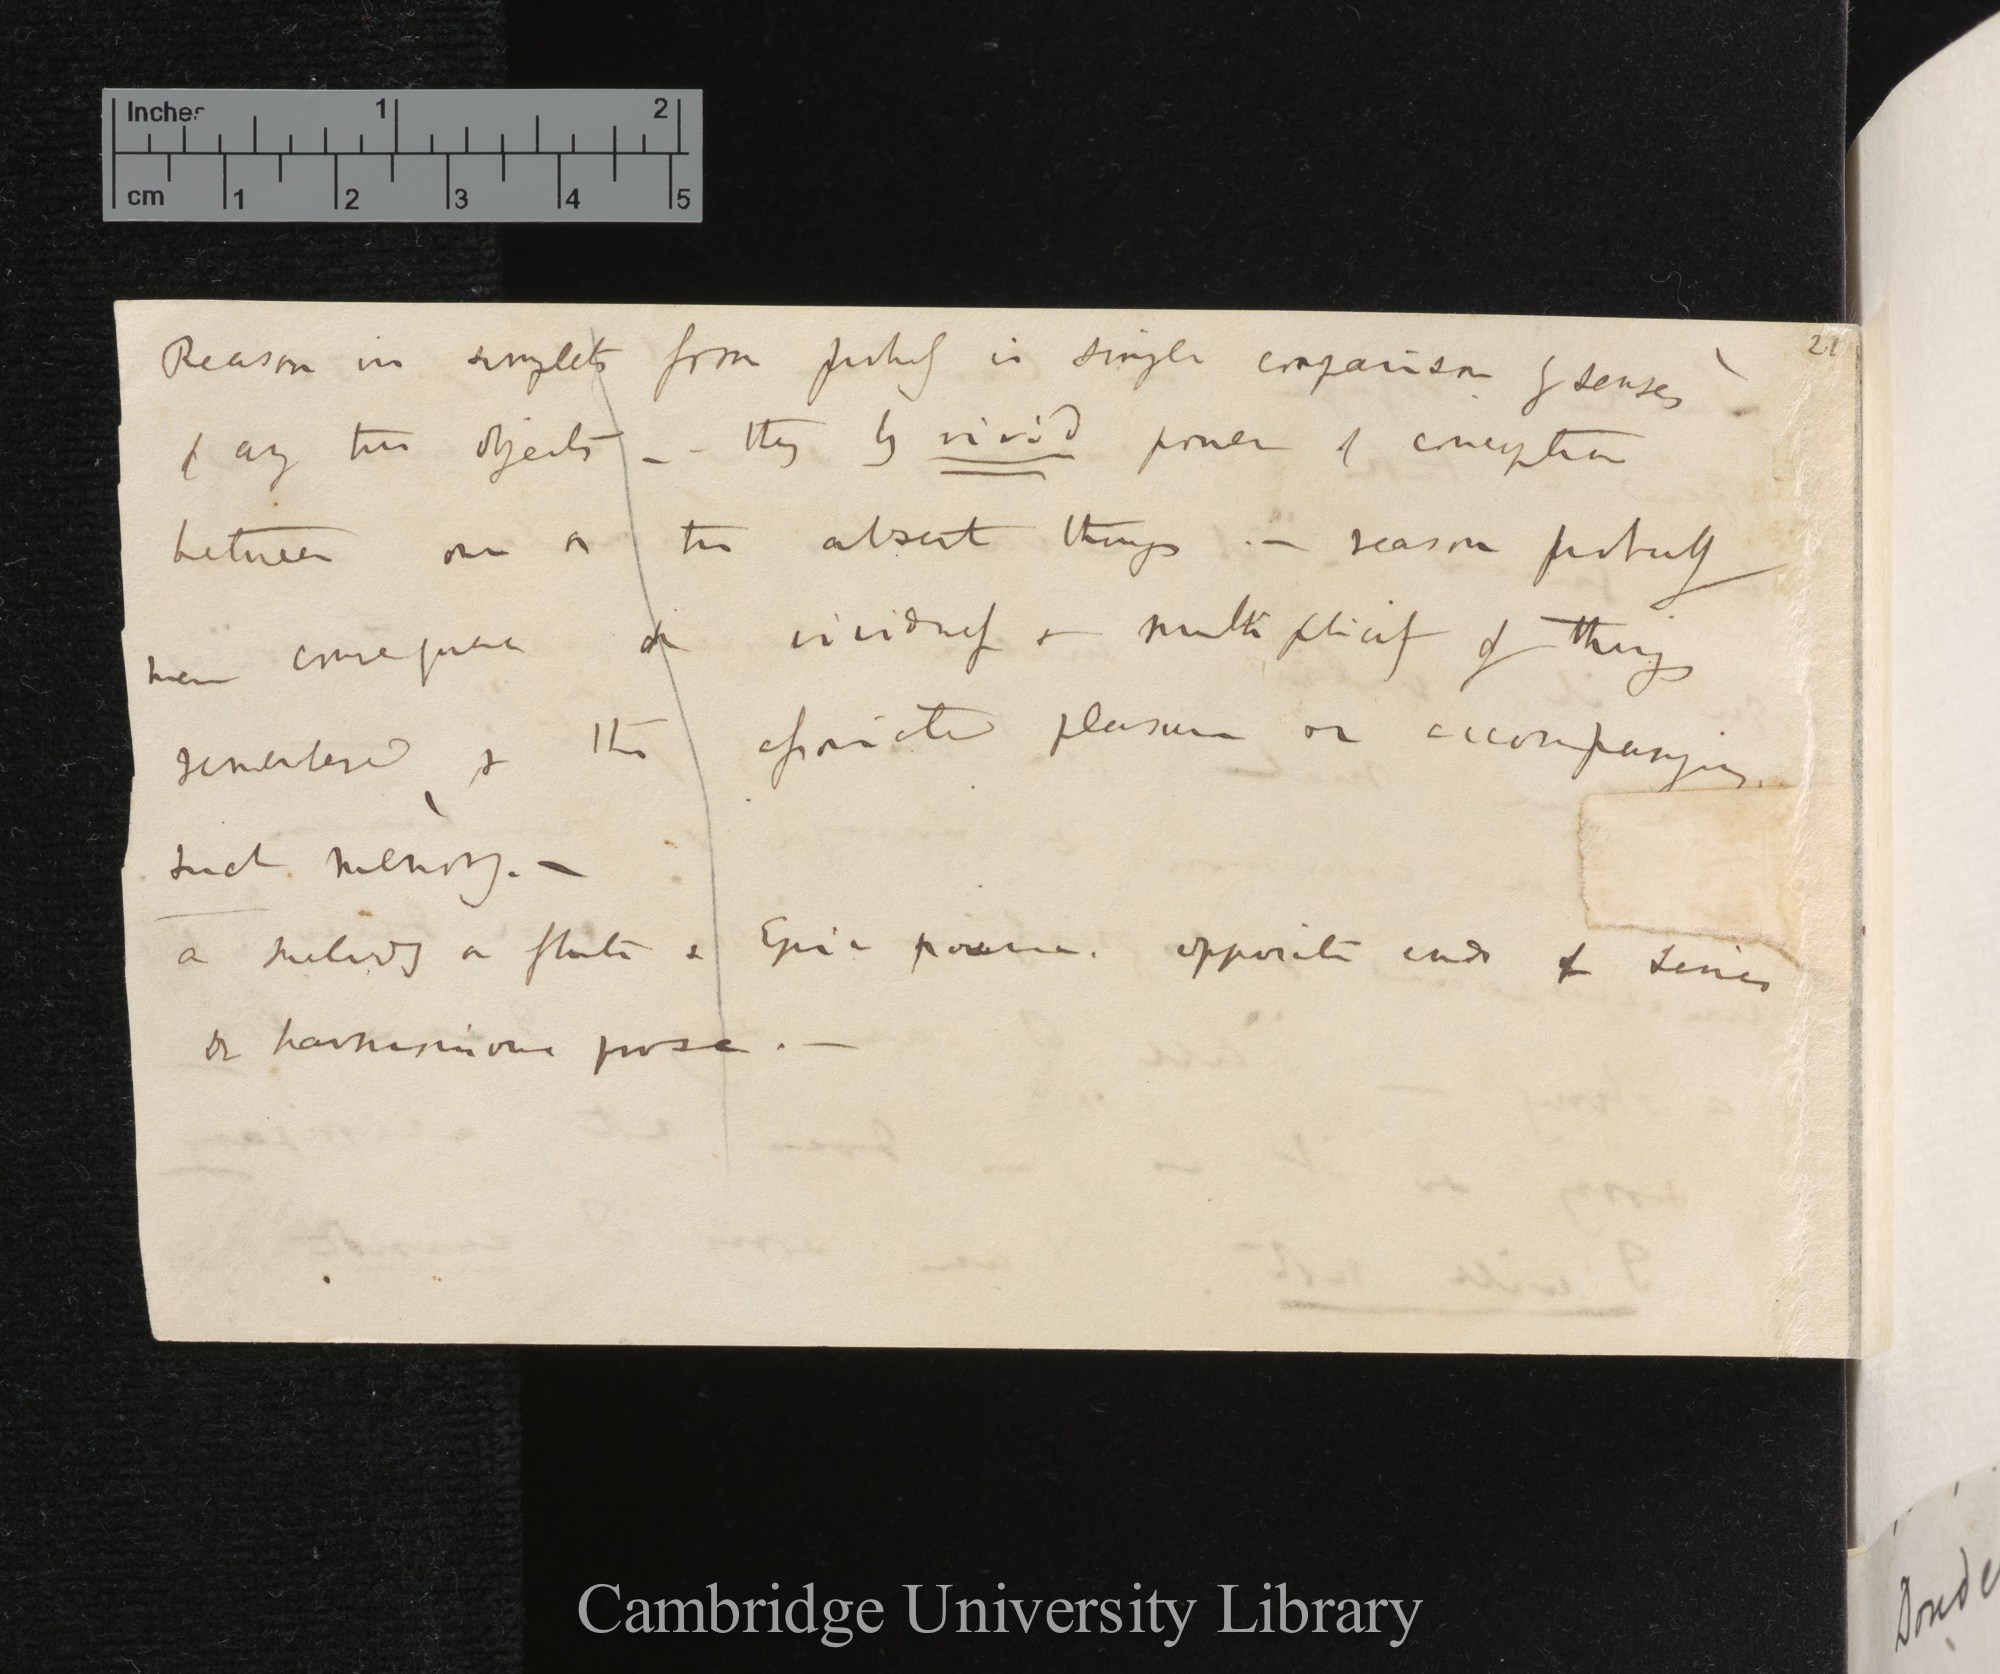 Inches 1 2
cm 1 2 3 4 5
21
Reason in simplest form probably is single comparison by senses
of any two objects — they by vivid power of conception
between one or two absent things .— reason probably
mere consequence of vividness & multiplicity of things
remembered & the associated pleasure on accompanying
such memory. —
a melody on flute & Epic poem. opposite ends of series
or harmonious prose. —
Cambridge University Library